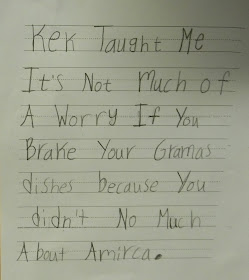 Kek Taught Me
It's Not Much of
A Worry If You
Brake Your Gramas
dishes because You
didn't No Much
About Amirca.